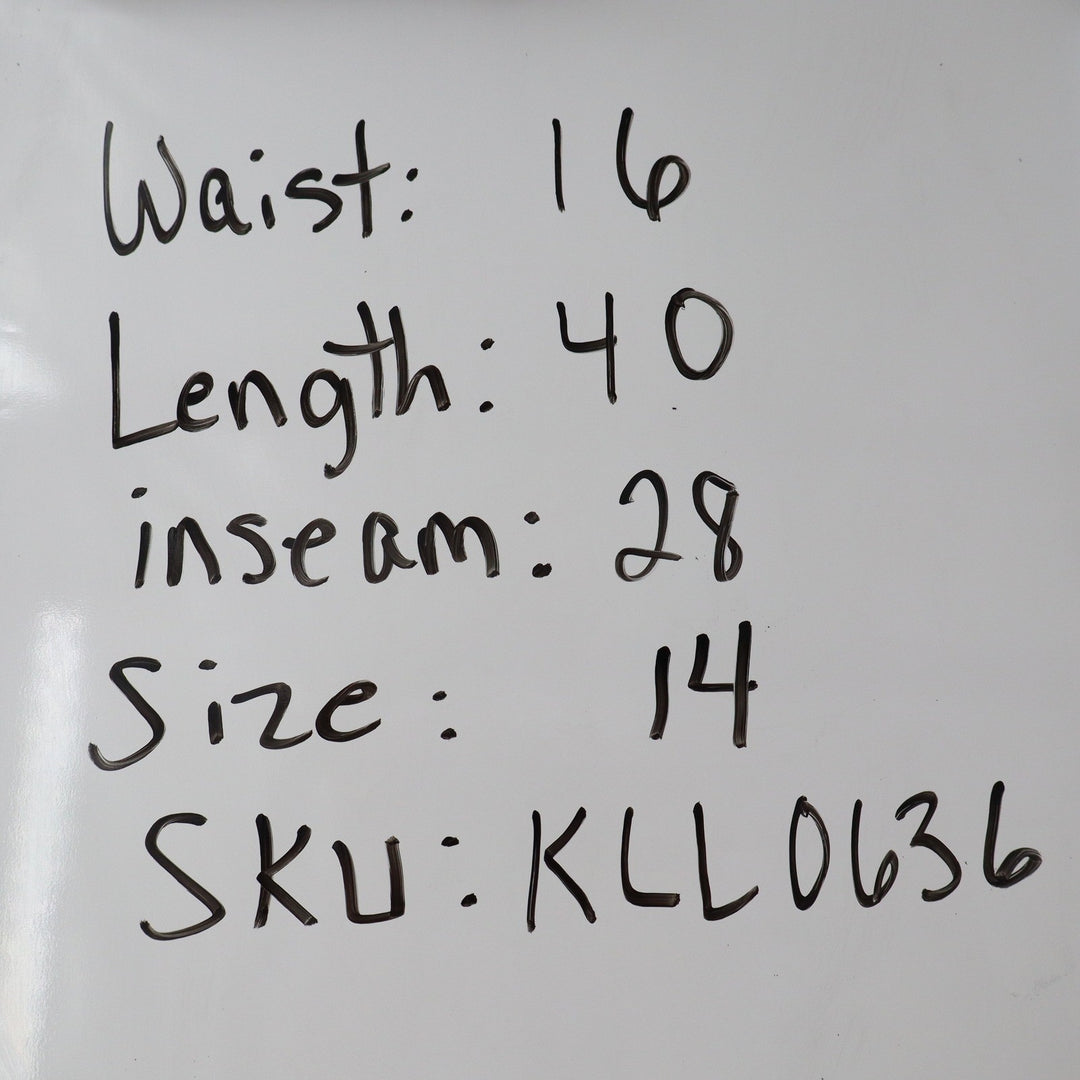 Waist: 16
Length: 40
inseam: 28
Size: 14
SKU: KLL0636